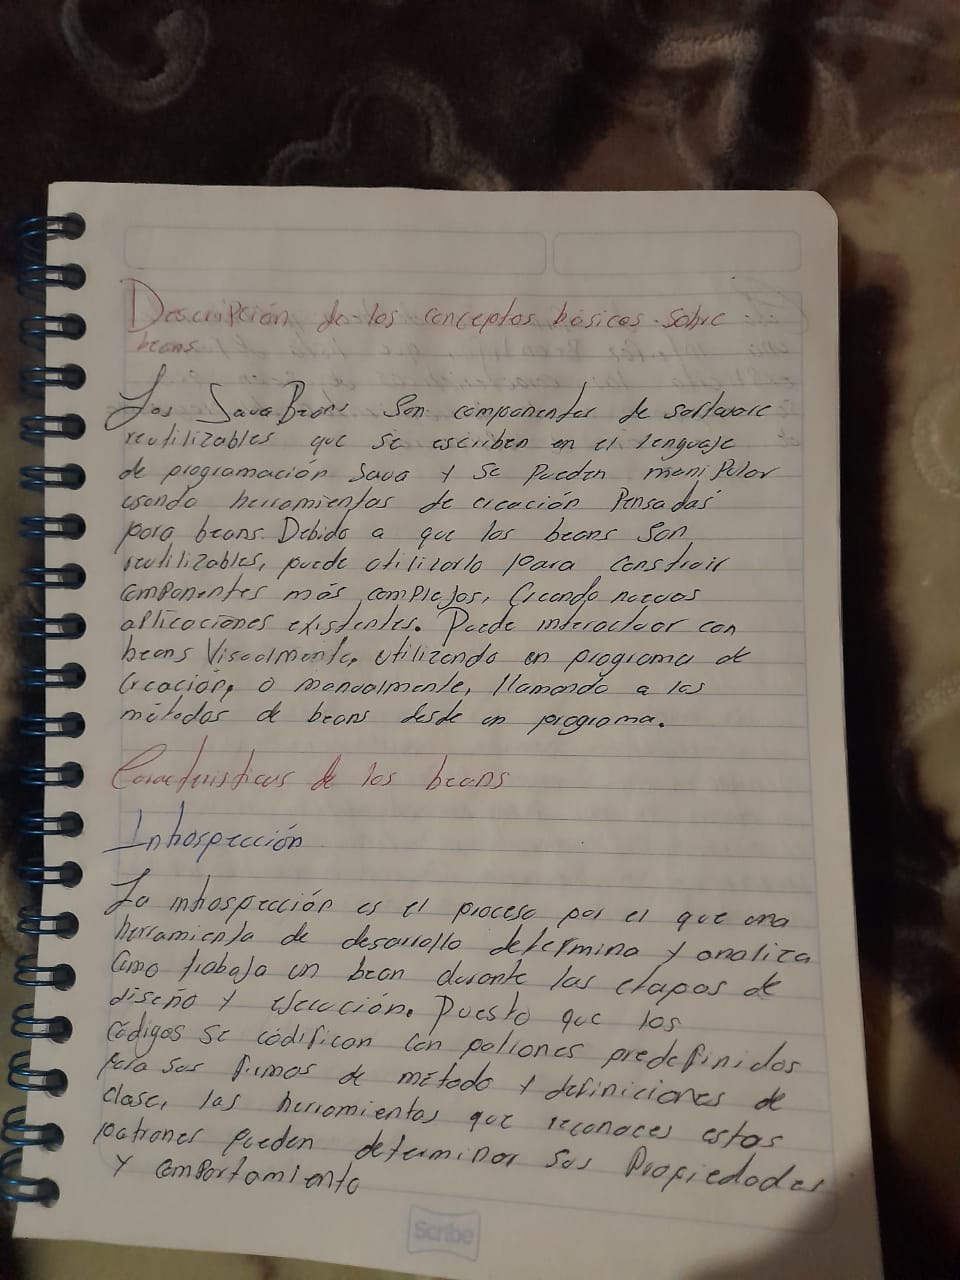 Descripción de los conceptos básicos sobre
beans
Los JavaBeans Son componentes de software
reutilizables que se escriben en el lenguaje
de programación Java y se pueden manipular
usando herramientas de creación Pensadas
para beans. Debido a que los beans son
reutilizables, puede utilizarlo para construir
componentes más complejos, Creando nuevas
aplicaciones existentes. Puede interactuar con
beans Visualmente, utilizando un programa de
Creación, o manualmente, llamando a los
métodos de beans desde un programa.
Características de los beans
Introspección
La introspección es el proceso por el que una
herramienta de desarrollo determina y analiza
como trabaja un bean durante las etapas de
diseño y ejecución. Puesto que los
códigos se códifican con patrones predefinidos
para sus firmas de método y definiciones de
clase, las herramientas que reconoces estos
patrones pueden determinar sus Propiedades
y comportamiento
Scribe